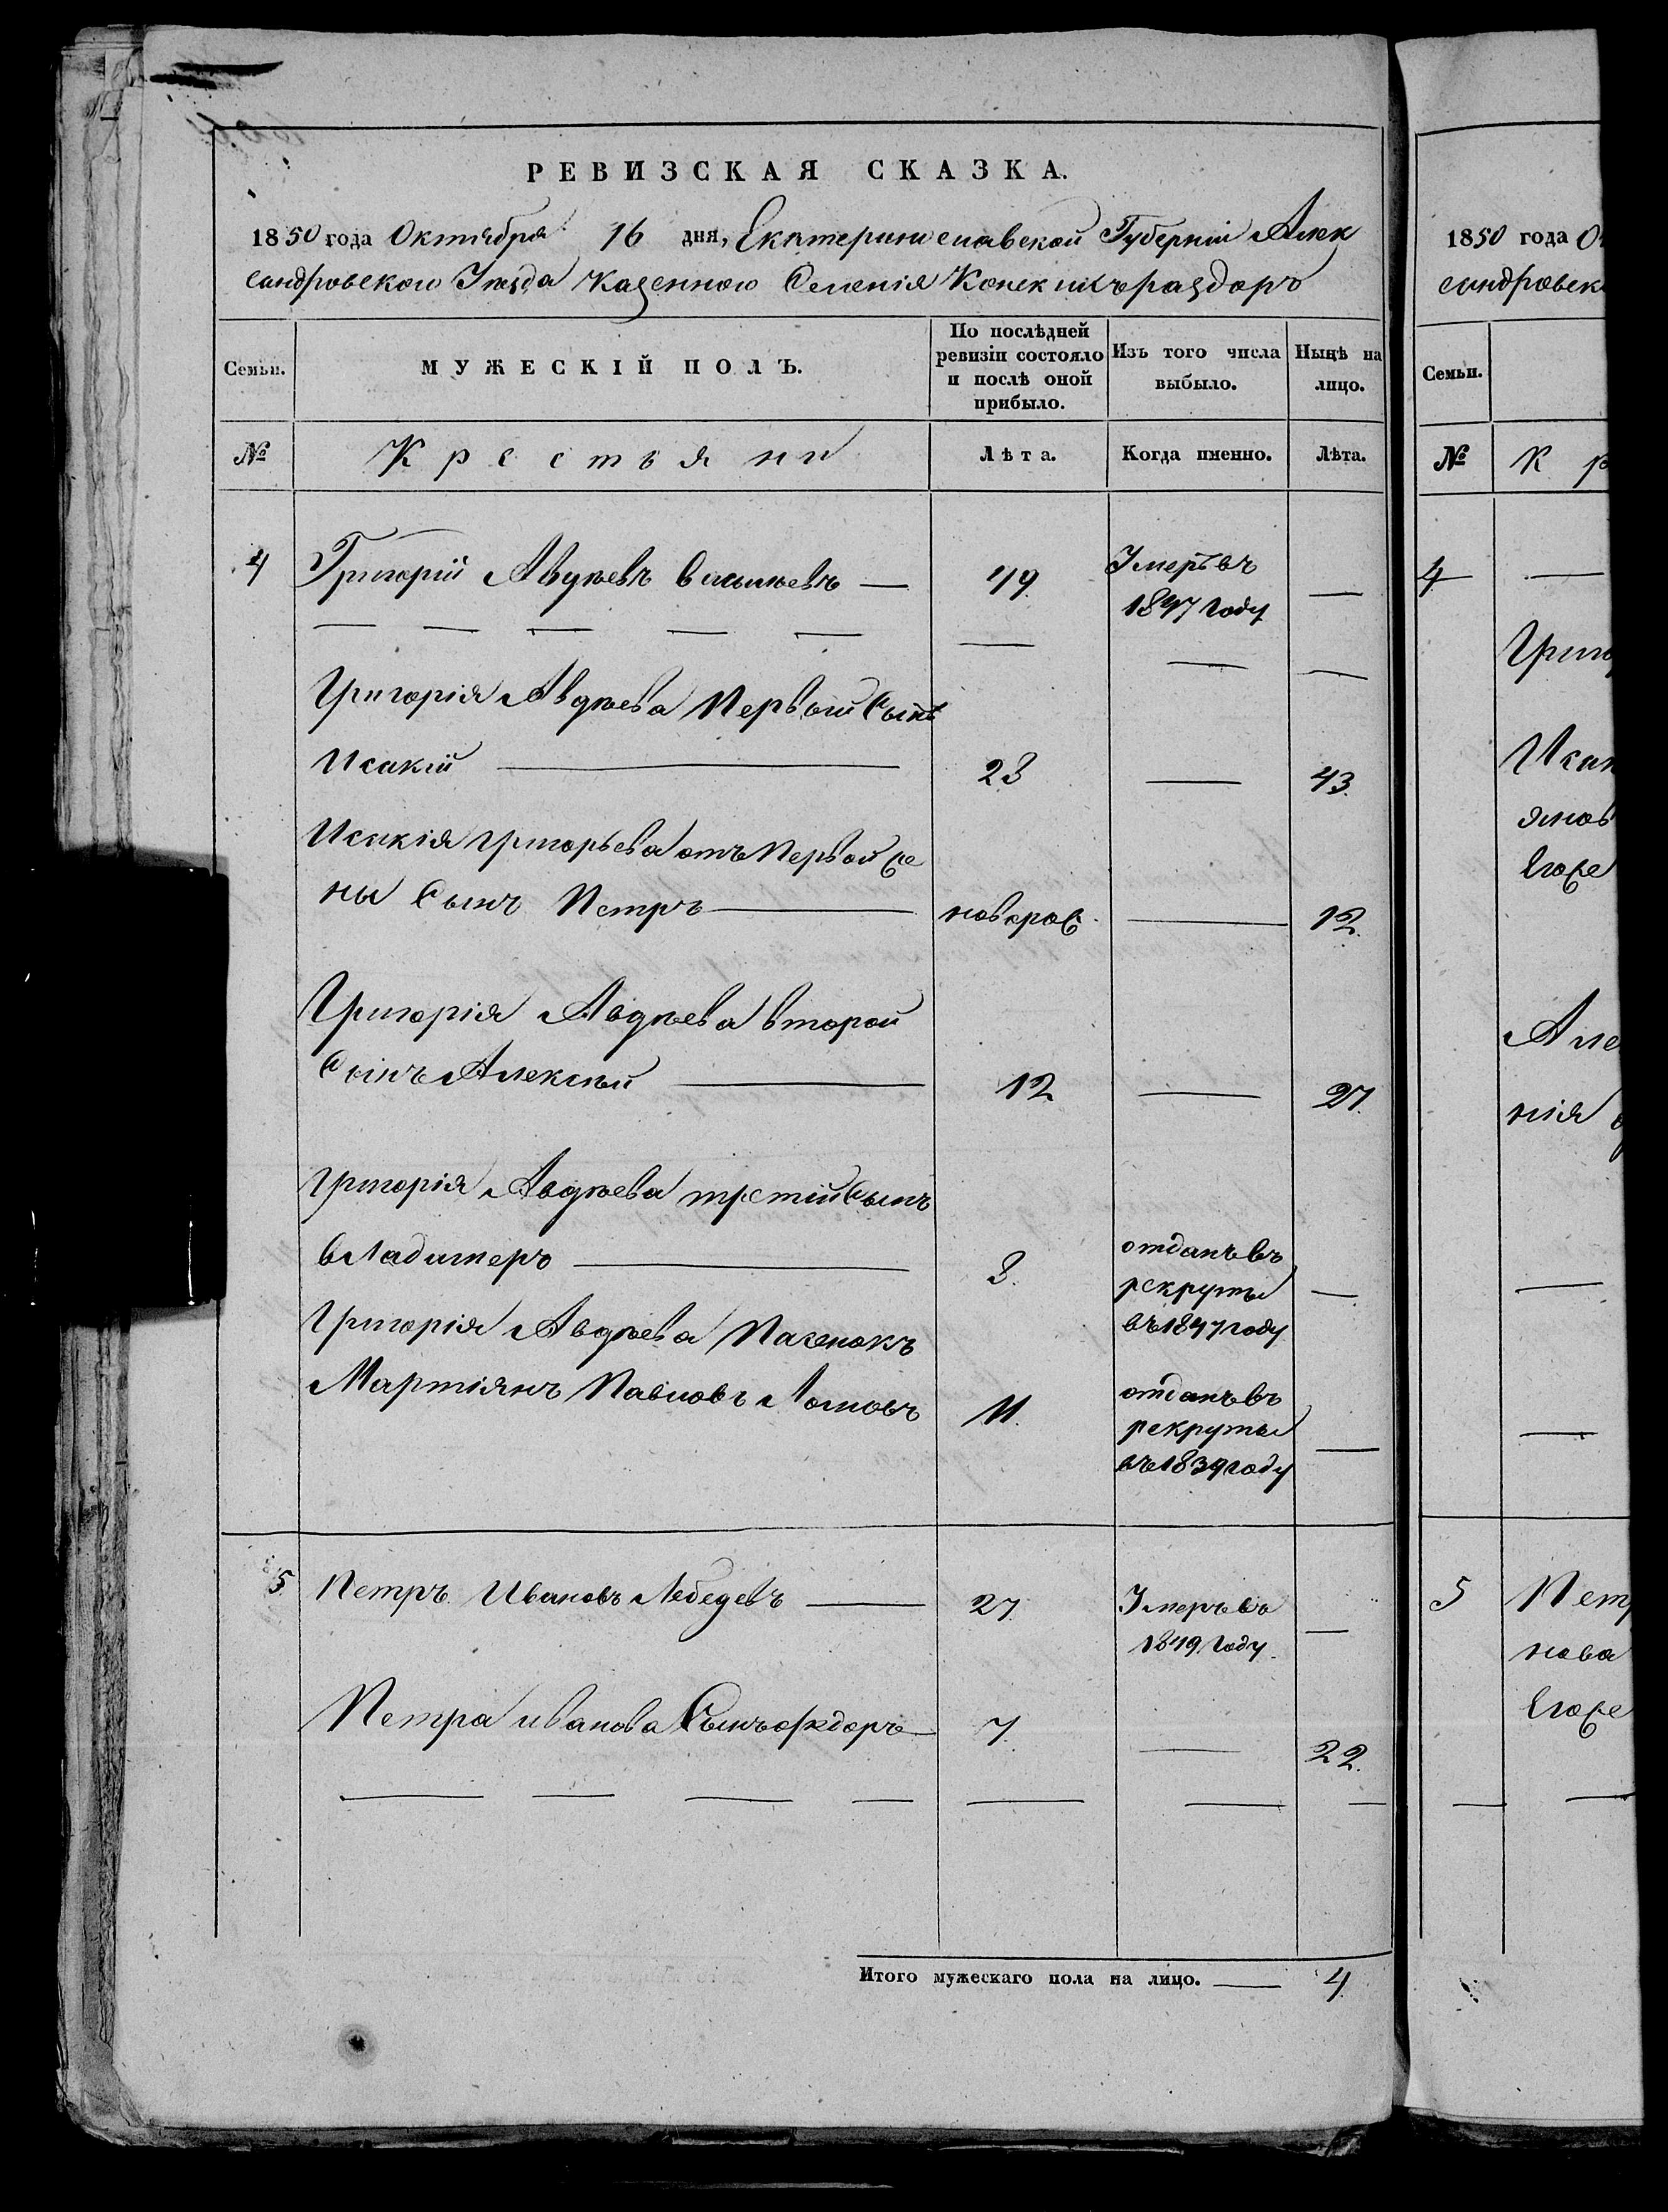 РЕВИЗСКАЯ СКАЗКА.
1850 года Октября 16 дня, Екатеринославской Губерніи Алек
сандровскаго Уѣзда казенного Селенія Конскихъ раздоръ
Семьи.
МУЖЕСКІЙ ПОЛЪ.
По послѣдней
ревизіи состояло
и послѣ оной
прибыло.
Изъ того числа
выбыло.
Нынѣ на
лицо.
№ Крестьяни Лѣта. Когда именно. Лѣта.
4 Григорій Авдѣевъ 49 Умеръ въ —
1847 году
Григорія Авдѣева Первый Сынъ
Исакій 28 — 43.
Исакія Григорьева отъ Первой же
ны Сынъ Петръ новорож — 12.
Григорія Авдѣева второй
Сынъ Алексѣй 12 — 27.
Григорія Авдѣева третій Сынъ
владимеръ 8. отданъ въ
рекруты —
въ 1847 году
Григорія Авдѣева Пасенокъ
Мартіянъ Павловъ 11. отданъ въ
рекруты —
въ 1839 году
5 Петръ Ивановъ Лебедевъ 27. Умеръ въ —
1849 году.
Петра иванова Сынъ ѳедоръ 7. — 22.
Итого мужескаго пола на лицо. — 4
1850 года О
сандровск
Семьи.
№ К р
4 —
Григо
Исак
янов
Егоже
Але
нія
5 Петр
нова
Егоже